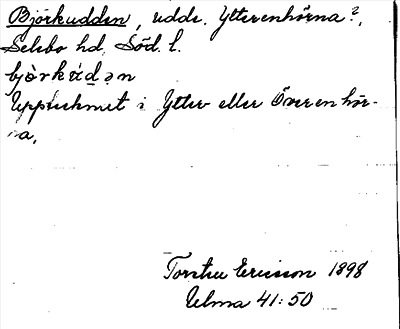 Björkudden, udde. Ytterenhörna?,
Selebo hd, Söd. l.
björkúdən
Upptecknat i Ytter eller Överenhör-
na.
Torsten Ericsson 1898
Ulma 41:50